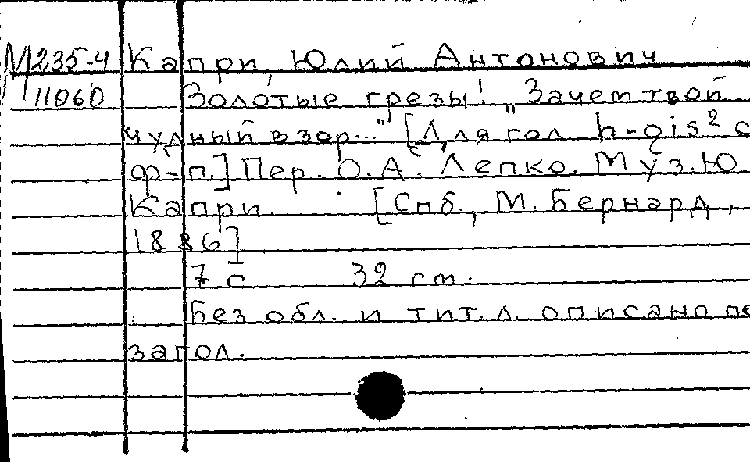 М235-4 Капри, Юлий Антонович
11060 Золотые грезы! "Зачем твой
чудный взор..." [Для гол. h-gis² с
ф-п.] Пер. О.А. Лепко. Муз. Ю.
Капри. [Спб., М. Бернард,
1886]
7 с 32 см.
Без обл. и тит. л. описано по
загол.